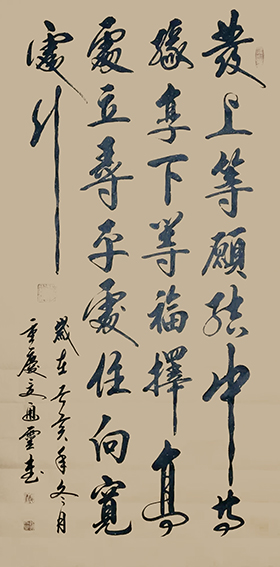 發上等願結中等
緣享下等福擇高
處立尋平處住向寬
處行
歲在己亥年冬月
重慶文書